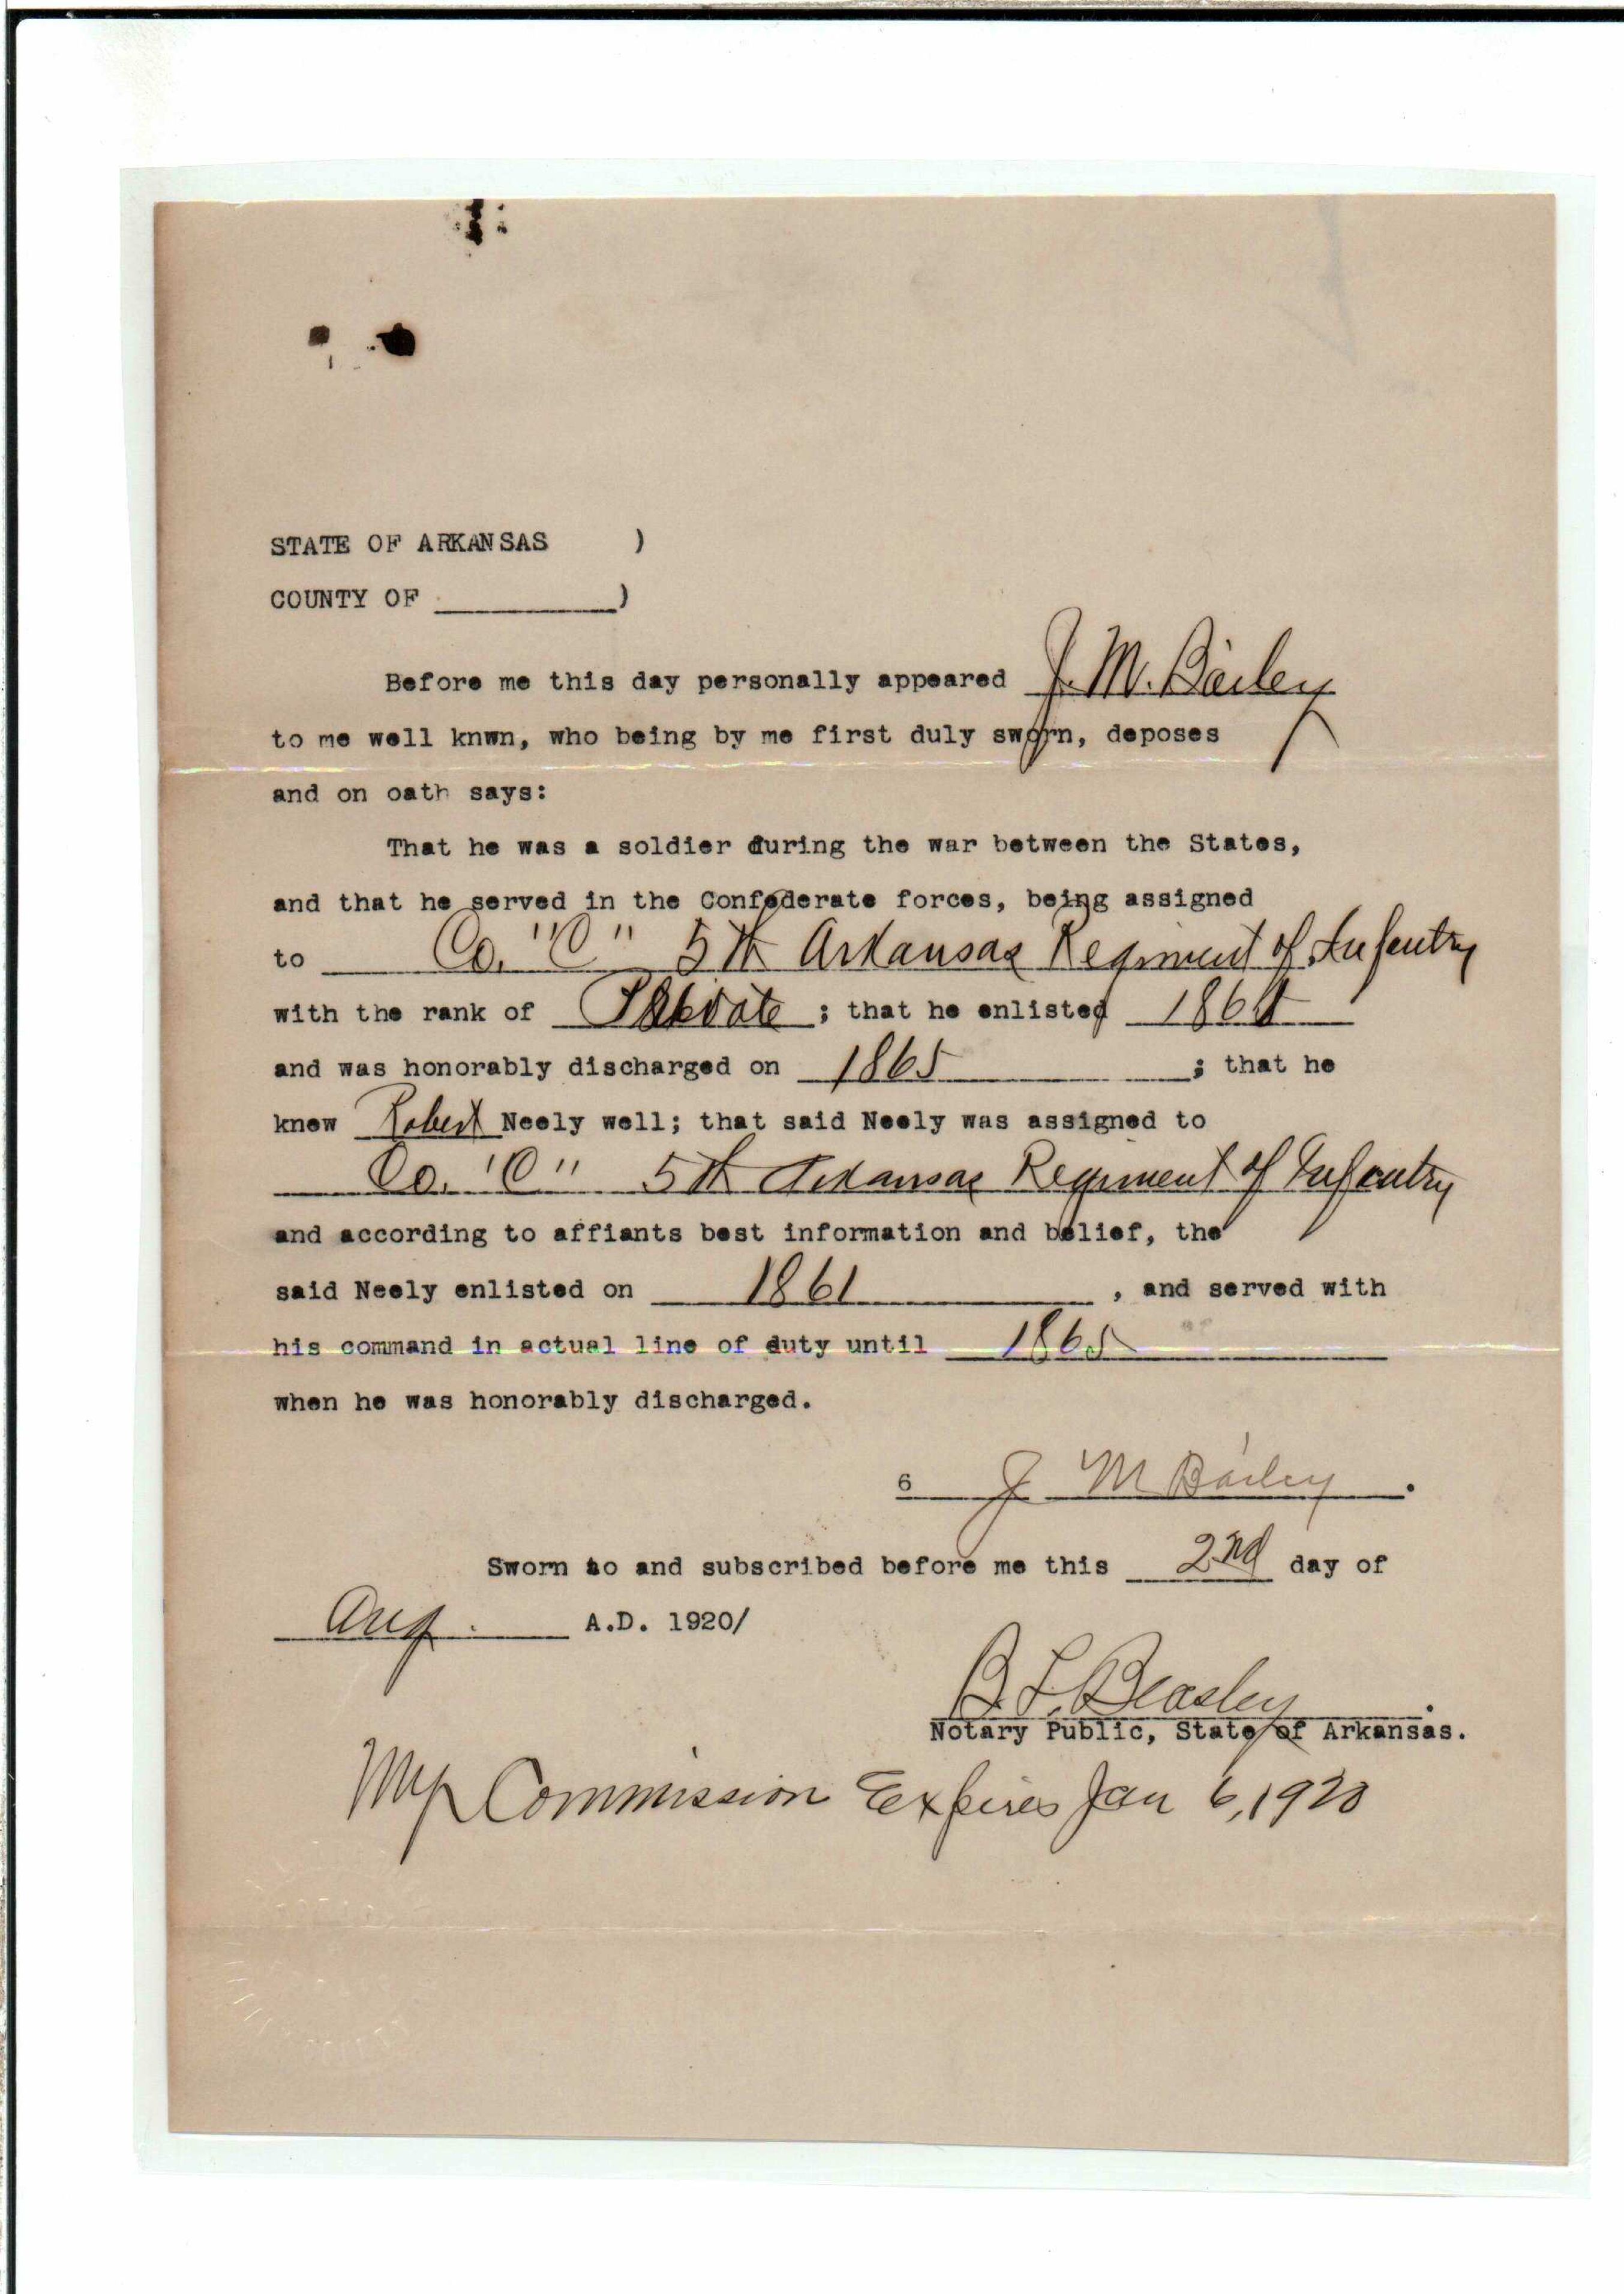 STATE OF ARKANSAS )
COUNTY OF __________)
Before me this day personally appeared J. M. Bailey
to me well knwn, who being by me first duly sworn, deposes
and on oath says:
That he was a soldier during the war between the States,
and that he served in the Confederate forces, being assigned
to Co. "C" 5th Arkansas Regiment of Infantry
with the rank of Private ; that he enlisted
and was honorably discharged on 1865 ; that he
knew Robert Neely well; that said Neely was assigned to
Co. "C" 5th Arkansas Regiment of Infantry
and according to affiants best information and belief, the
said Neely enlisted on 1861 , and served with
his command in actual line of duty until 1865
when he was honorably discharged.
6 J M Bailey .
Sworn to and subscribed before me this 2nd day of
Aug. A.D. 1920/
B. F. Beasley .
Notary Public, State of Arkansas.
My Commission Expires Jan 6, 1920